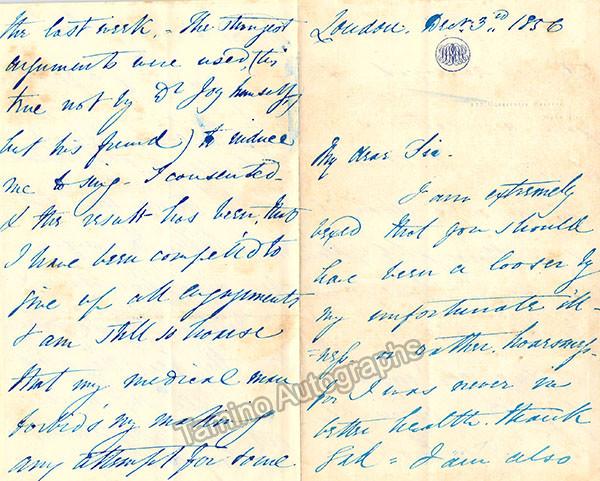 London. Decr. 3rd 1856
My dear Sir.
I am extremely
vexed that you should
have been a looser by
my unfortunate ill-
=ness or rather hoarseness-
for I was never in
better health. thank
God = I am also
the last week. - The strongest
arguments were used, (tis
true not by Dr Joy himself,
but his friend) to induce
me to sing - I consented -
& the result has been, that
I have been compell'd to
give up all engagements
& am still so hoarse
that my medical man
forbid's my making
any attempt for some
Tamino Autographs